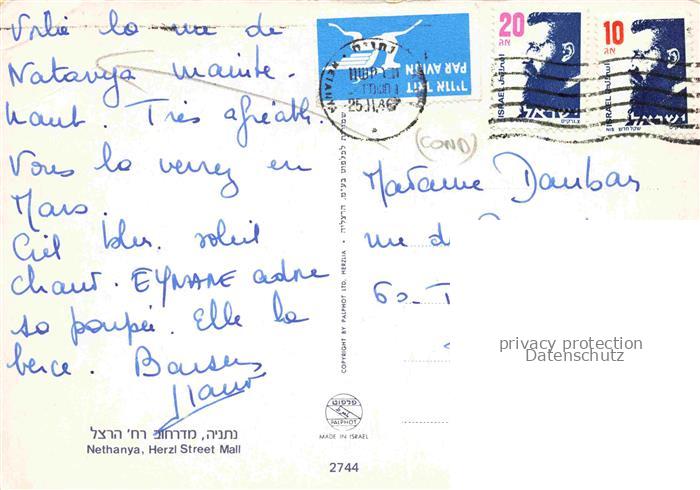 Voilà la rue de
Natanya mainte-
nant. Très agréable.
Vous la verrez en
Mars.
Ciel bleu. soleil
chaud. EYNANE adore
sa poupée. Elle la
berce. Baisers
נתניה, מדרחוב רח' הרצל
Nethanya, Herzl Street Mall
COPYRIGHT BY PALPHOT LTD. HERZLIA •
פלפוט
PALPHOT
MADE IN ISRAEL
2744
דואר אויר
PAR AVION
NETANYA
נתניה
20
אג
ISRAEL
ישראל
10
אג
ISRAEL
ישראל
(COND)
Madame Daubas
rue d
60. T
privacy protection
Datenschutz